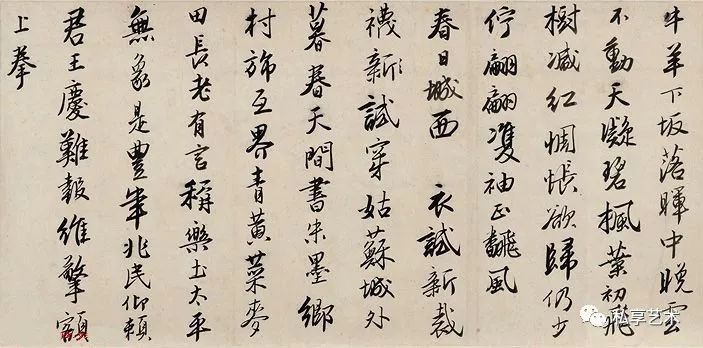 牛羊下坂落暉中晚雲
不動天凝碧楓葉初飛
樹减紅惆悵欲歸仍少
佇翩翩雙袖正飜風
春日城西 衣試新裁
襪新試穿姑蘇城外
暮春天間書朱墨鄉
村旆互界青黃菜麥
田長老有言稱樂土太平
無象是豊年兆民仰賴
君王慶難報維擎額
上拳
私享艺术